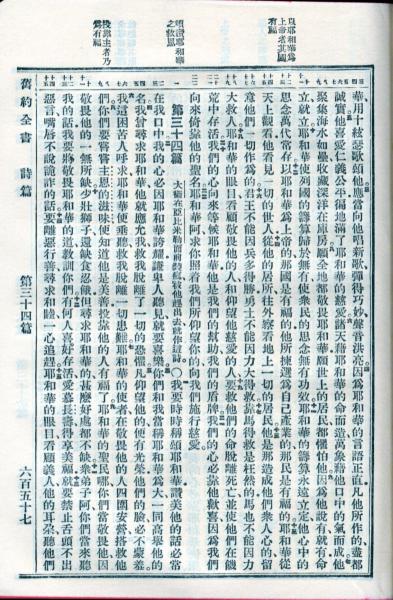 以耶和華爲上帝者其國有福
頌讚耶和華之救恩
投靠主者乃爲有福
華用十絃瑟歌頌他應當向他唱新歌彈得巧妙聲音洪亮因爲耶和華的言語正直凡他所作的盡都
誠實他喜愛仁義公平徧地滿了耶和華的慈愛諸天藉耶和華的命而造萬象藉他口中的氣而成他
聚集海水如壘收藏深洋在庫房願全地都敬畏耶和華願世上的居民都懼怕他因爲他說有就有命
立就立耶和華使列國的籌算歸於無有使衆民的思念無有功效耶和華的籌算永遠立定他心中的
思念萬代常存以耶和華爲上帝的那國是有福的他所揀選爲自己產業的那民是有福的耶和華從
天上觀看他看見一切的世人從他的居所往外察看地上一切的居民是那造成他們衆人心的留
意他們一切作爲的君王不能因兵多得勝勇士不能因力大得救靠馬得救是枉然的馬也不能因力
大救人耶和華的眼目看顧敬畏他的人和仰望他慈愛的人要救他們的命脫離死亡並使他們在饑
荒中存活我們的心向來等候耶和華他是我們的幫助我們的盾牌我們的心必靠他歡喜因爲我們
向來倚靠他的聖名耶和華阿求你照着我們所仰望你的向我們施行慈愛
第三十四篇 大衞在亞比米勒面前裝瘋被他趕出去就作這詩 ○我要時時稱頌耶和華讚美他的話必常
在我口中我的心必因耶和華誇耀謙卑人聽見就要喜樂你們和我當稱耶和華爲大一同高舉他的
名我曾尋求耶和華他就應允我救我脫離了一切的恐懼凡仰望他的便有光榮他們的臉必不蒙羞
我這困苦人呼求耶和華便垂聽救我脫離一切患難耶和華的使者在敬畏他的人四圍安營搭救他
們你們要嘗嘗主恩的滋味便知道他是美善投靠他的人有福了耶和華的聖民哪你們當敬畏他因
敬畏他的一無所缺少壯獅子還缺食忍餓但尋求耶和華的甚麼好處都不缺衆弟子阿你們當來聽
我的話我要將敬畏耶和華的道教訓你們有何人喜好存活愛慕長壽得享美福就要禁止舌頭不出
惡言嘴脣不說詭詐的話要離惡行善尋求和睦一心追趕耶和華的眼目看顧義人他的耳朶聽他們
舊約全書 詩篇 第三十四篇 六百五十七